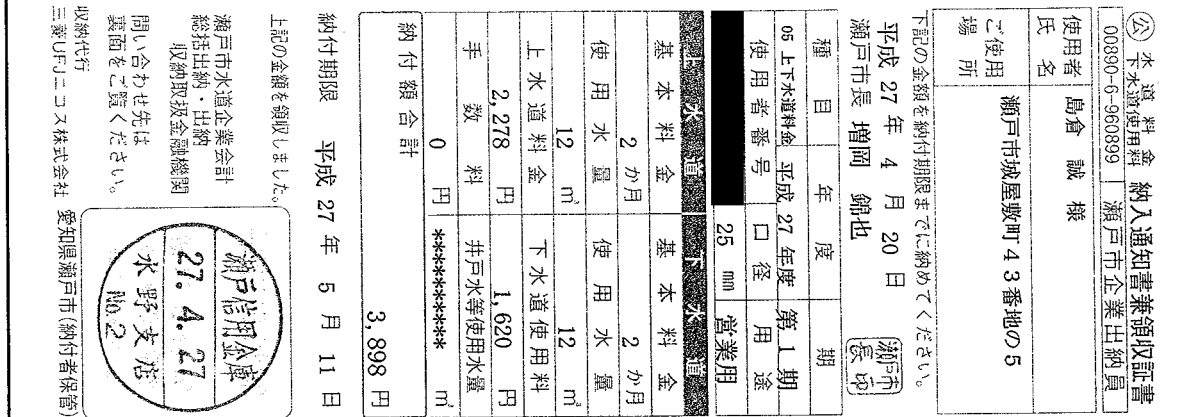 公 水道料金 下水道使用料 納入通知書兼領収証書
00890-6-960899 瀬戸市企業出納員
使用者氏名 島倉 誠 様
ご使用場所 瀬戸市城屋敷町43番地の5
下記の金額を納付期限までに納めてください。
平成 27 年 4 月 20 日
瀬戸市長 増岡 錦也 瀬戸市長印
種目 年度 期
05 上下水道料金 平成 27 年度 第 1 期
使用者番号 口径 用途
25 mm 営業用
上水道 下水道
基本料金 基本料金
2 か月 2 か月
使用水量 使用水量
12 ㎥ 12 ㎥
上水道料金 下水道使用料
2,278 円 1,620 円
手数料 井戸水等使用水量
0 円 ********* ㎥
納付額合計 3,898 円
納付期限 平成 27 年 5 月 11 日
上記の金額を領収しました。
瀬戸市水道企業会計
総括出納・出納
収納取扱金融機関
問い合わせ先は
裏面をご覧ください。
収納代行
三菱UFJニコス株式会社
瀬戸信用金庫
27. 4. 27
水野支店
No. 2
愛知県瀬戸市(納付者保管)